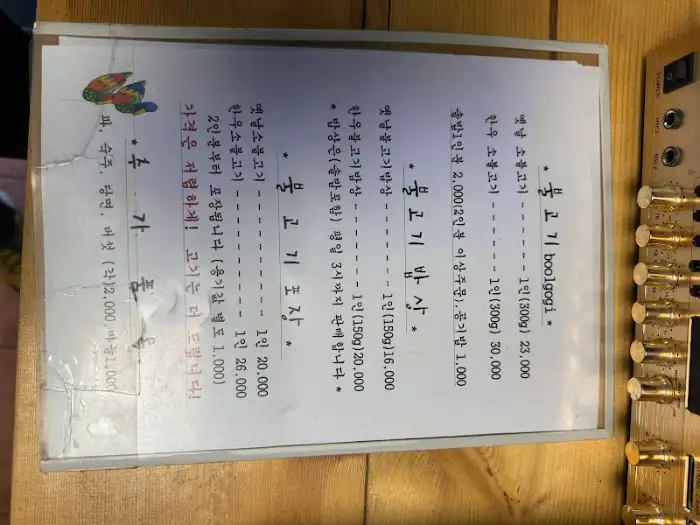 * 불 고 기 boolgogi *
옛날 소불고기 - - - - - - 1인(300g) 23.000
한우 소불고기 - - - - - - 1인(300g) 30.000
솥밥1인분 2.000(2인분 이상주문). 공기밥 1.000
* 불 고 기 밥 상 *
옛날불고기밥상 - - - - - - - 1인(150g)16.000
한우불고기밥상 - - - - - - - 1인(150g)20.000
* 밥상은(솥밥포함) 평일 3시까지 판매합니다 *
* 불 고 기 포장 *
옛날소불고기 - - - - - - - - - 1인 20.000
한우소불고기 - - - - - - - - - 1인 26.000
2인분부터 포장됩니다 (용기값 별도 1.000)
가격은 저렴하게! 고기는 더 드립니다!
* 추 가 품 목
파. 숙주. 당면. 버섯 (각)2,000.마늘1,000
POWER
MIC1
MIC2